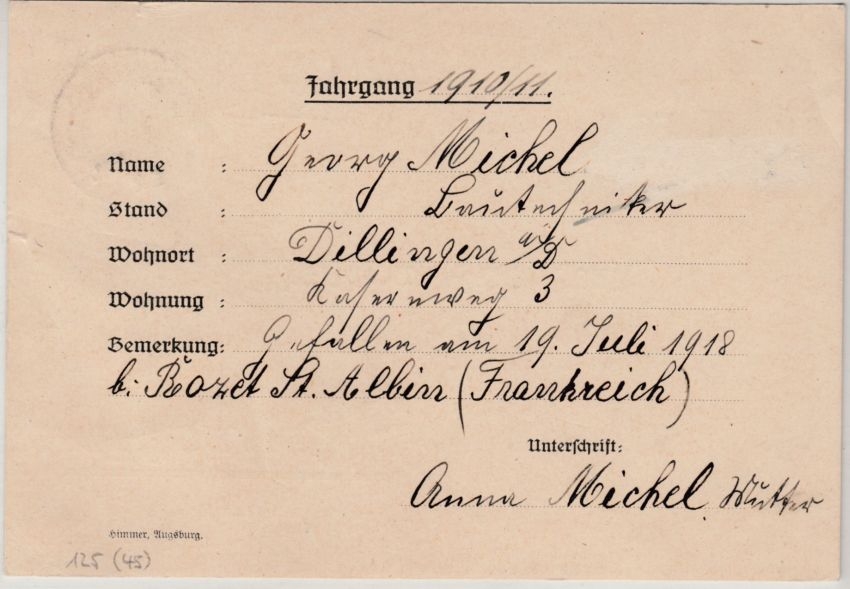 Jahrgang 1910/11.
Name : Georg Michel
Stand : Bautechniker
Wohnort : Dillingen a/D
Wohnung : Kasernweg 3
Bemerkung: Gefallen am 19. Juli 1918
b. Rozet St. Albin (Frankreich)
Unterschrift:
Anna Michel, Mutter
Himmer, Augsburg.
125 (45)